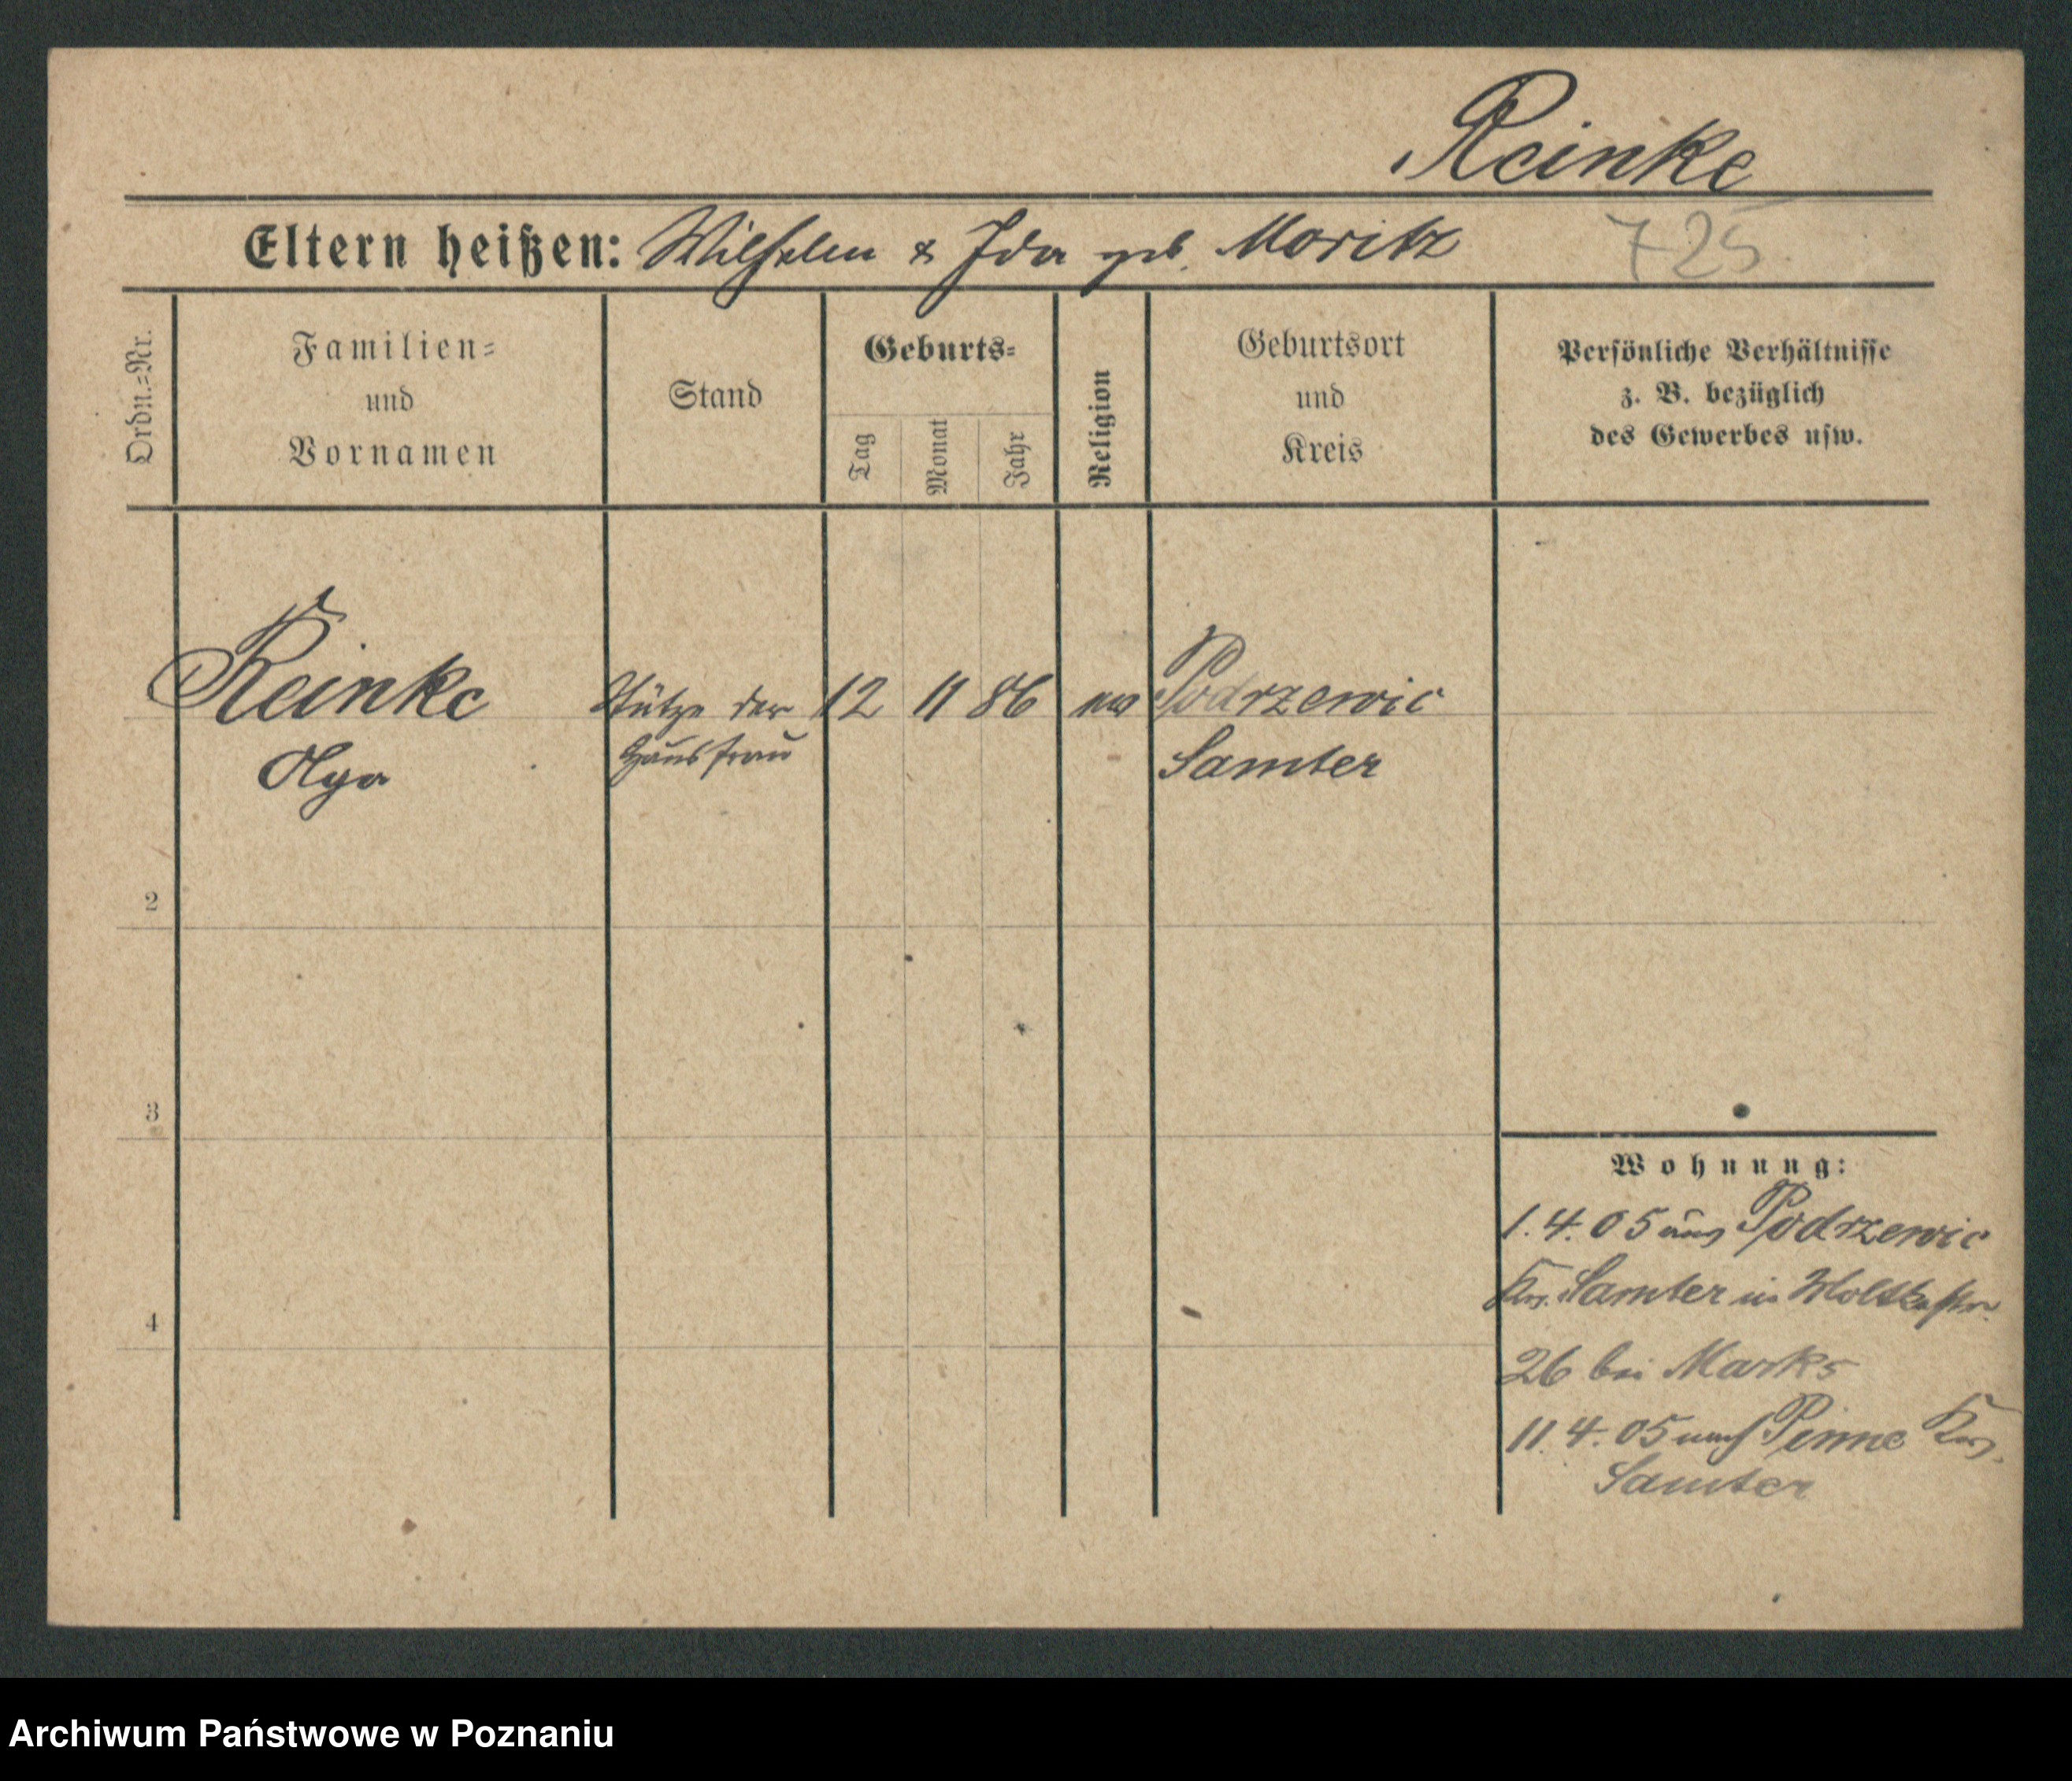 Reinke
Eltern heißen: Wilhelm & Ida geb. Moritz 725
Ordn.=Nr.
Familien=
und
Vornamen
Stand
Geburts=
Tag
Monat
Jahr
Religion
Geburtsort
und
Kreis
Persönliche Verhältnisse
z. B. bezüglich
des Gewerbes usw.
Reinke Stütze der 12 11 86 Podrzewie
Olga Hausfrau Samter
2
3
4
Wohnung:
1. 4. 05 aus Podrzewie
Krs. Samter in Moltkestr.
26 bei Marks
11. 4. 05 nach Pinne Krs.
Samter
Archiwum Państwowe w Poznaniu